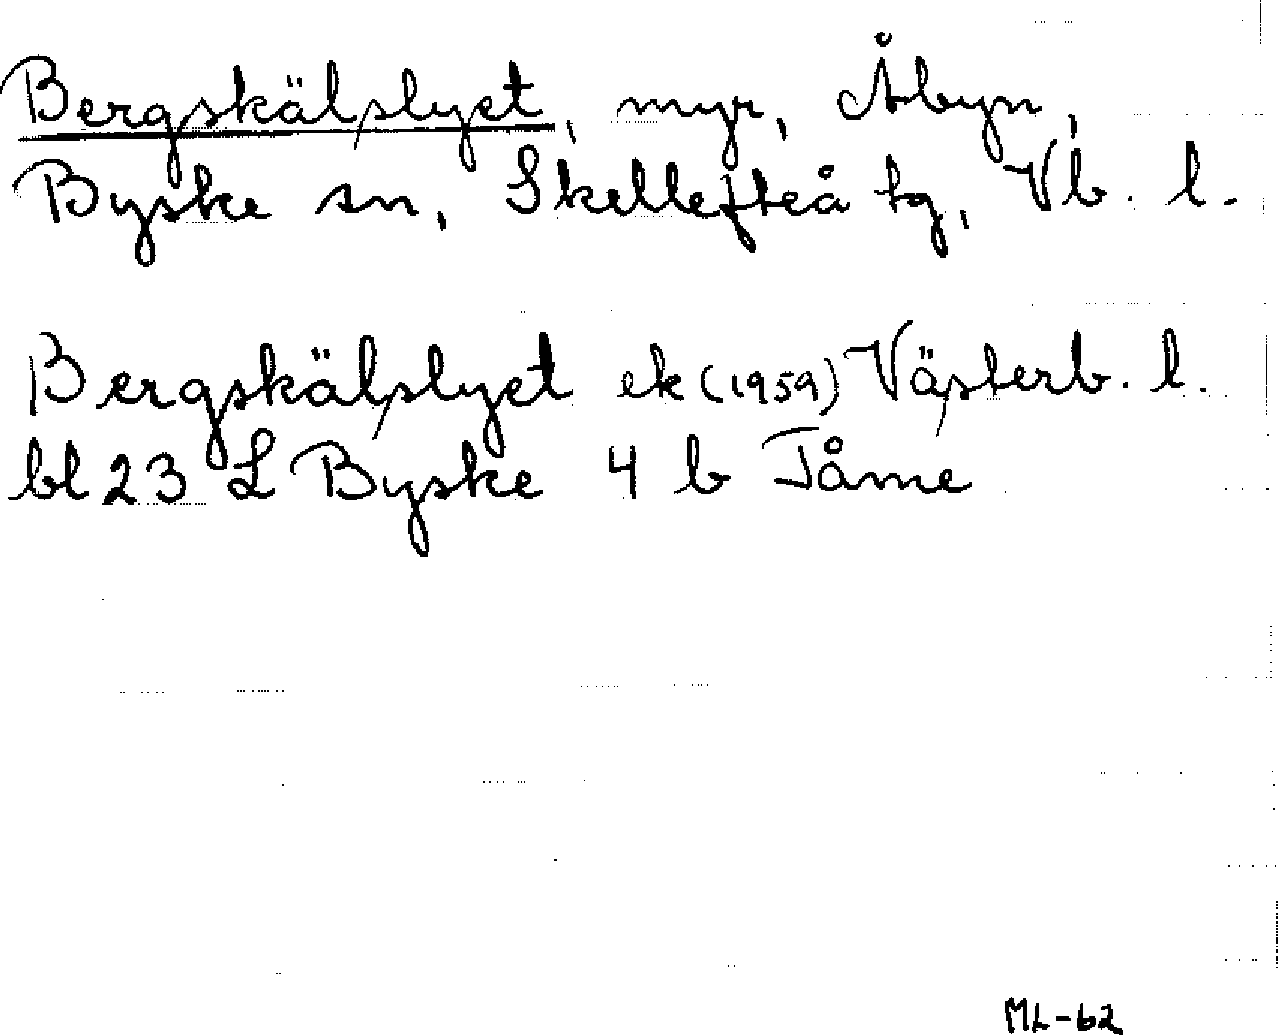 Bergskälslyet, myr, Åbyn,
Byske sn, Skellefteå tg, Vb. l.
Bergskälslyet ek (1959) Västerb. l.
bl 23 L Byske 4 b Tåme
ML-62